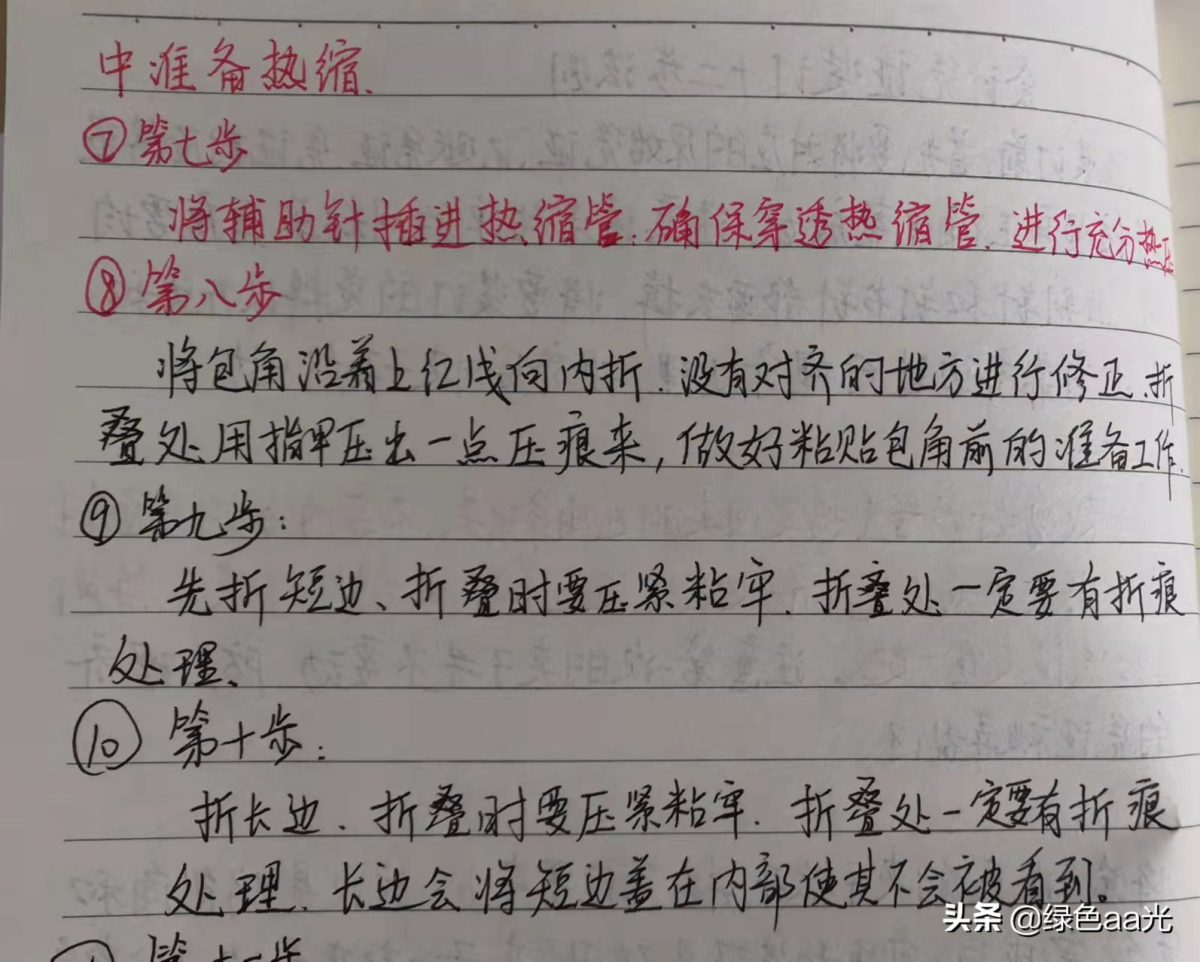 中准备热缩.
⑦第七步
将辅助针插进热缩管.确保穿透热缩管.进行充分热压
⑧第八步
将包角沿着上红线向内折.没有对齐的地方进行修正.折
叠处用指甲压出一点压痕来,做好粘贴包角前的准备工作.
⑨第九步:
先折短边、折叠时要压紧粘牢.折叠处一定要有折痕
处理、
⑩第十步:
折长边、折叠时要压紧粘牢.折叠处一定要有折痕
处理、长边会将短边盖在内部使其不会被看到。
头条 @绿色aa光
第十一步